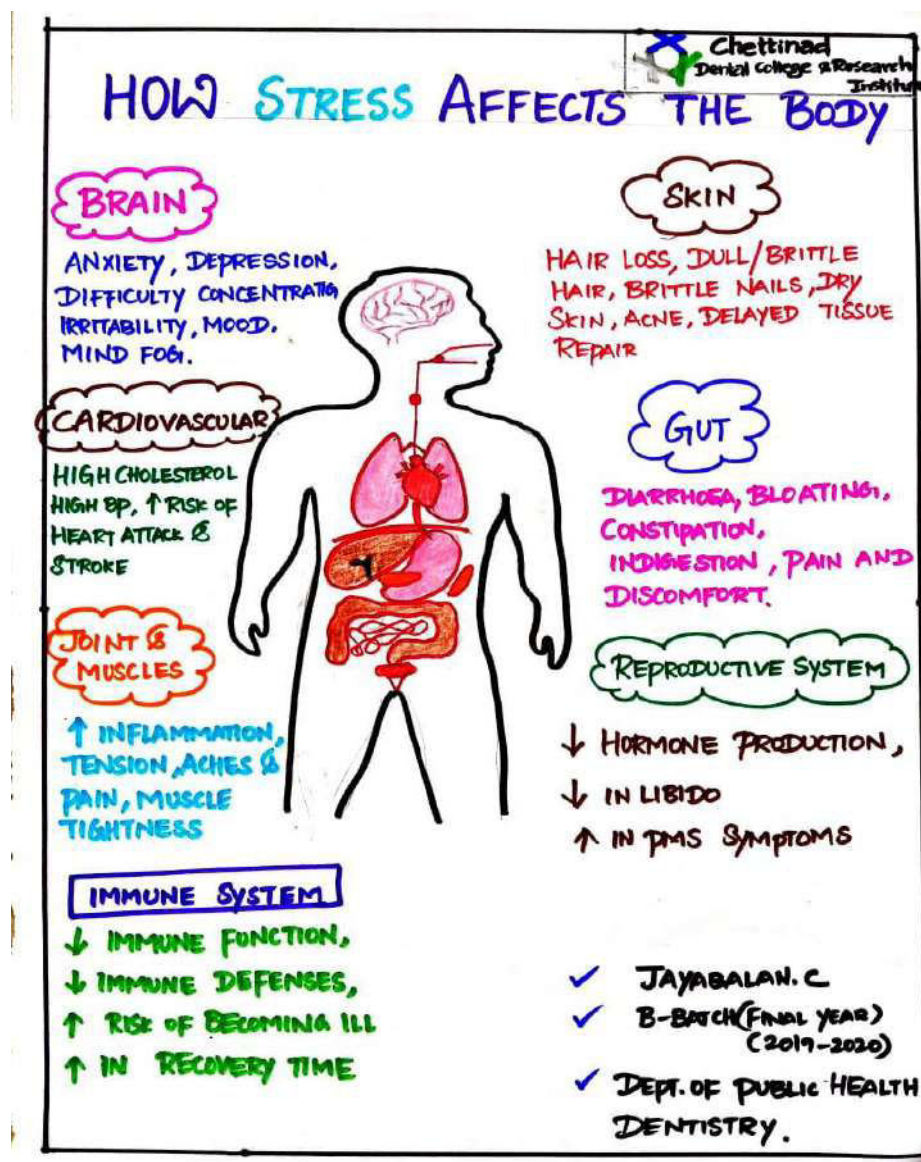 Chettinad
Dental College & Research
Institute
HOW STRESS AFFECTS THE BODY
BRAIN
ANXIETY, DEPRESSION,
DIFFICULTY CONCENTRATIG
IRRITABILITY, MOOD.
MIND FOG.
CARDIOVASCULAR
HIGH CHOLESTEROL
HIGH BP, ↑ RISK OF
HEART ATTACK &
STROKE
JOINT &
MUSCLES
↑ INFLAMMATION,
TENSION, ACHES &
PAIN, MUSCLE
TIGHTNESS
IMMUNE SYSTEM
↓ IMMUNE FUNCTION,
↓ IMMUNE DEFENSES,
↑ RISK OF BECOMING ILL
↑ IN RECOVERY TIME
SKIN
HAIR LOSS, DULL/BRITTLE
HAIR, BRITTLE NAILS, DRY
SKIN, ACNE, DELAYED TISSUE
REPAIR
GUT
DIARRHOEA, BLOATING,
CONSTIPATION,
INDIGESTION, PAIN AND
DISCOMFORT.
REPRODUCTIVE SYSTEM
↓ HORMONE PRODUCTION,
↓ IN LIBIDO
↑ IN PMS SYMPTOMS
✓ JAYABALAN. C
✓ B-BATCH (FINAL YEAR)
(2019-2020)
✓ DEPT. OF PUBLIC HEALTH
DENTISTRY.